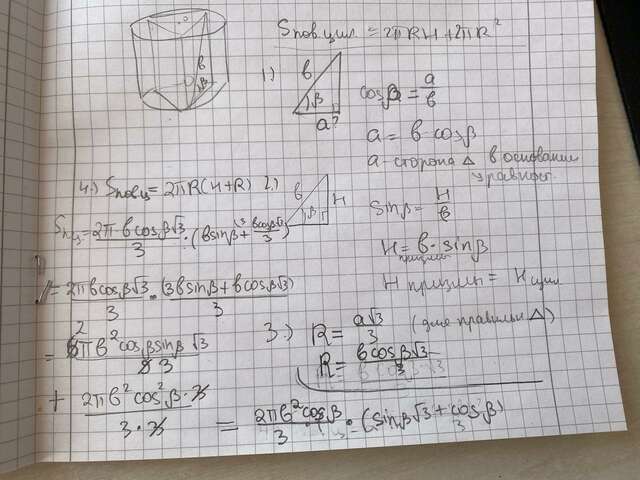 Sпов.цил = 2πRH + 2πR²
1.)
в
β
a?
cosβ = a/в
a = в·cosβ
a-сторона Δ в основании
4.) Sповц = 2πR(H+R)
2.)
в
β
H
sinβ = H/в
Sпц = 2πвcosβ√3/3 · (вsinβ + вcosβ√3/3)
H = в·sinβ
призмы
= 2πвcosβ√3/3 · (3вsinβ + вcosβ√3)/3
H призмы = H цил
3.) R = a√3/3 (для правильн Δ)
= 6πв²cosβsinβ√3
R = вcosβ√3/3
+ 2πв²cos²β·3/3·3
= 2πв²cosβ/3 · (sinβ√3 + cosβ)